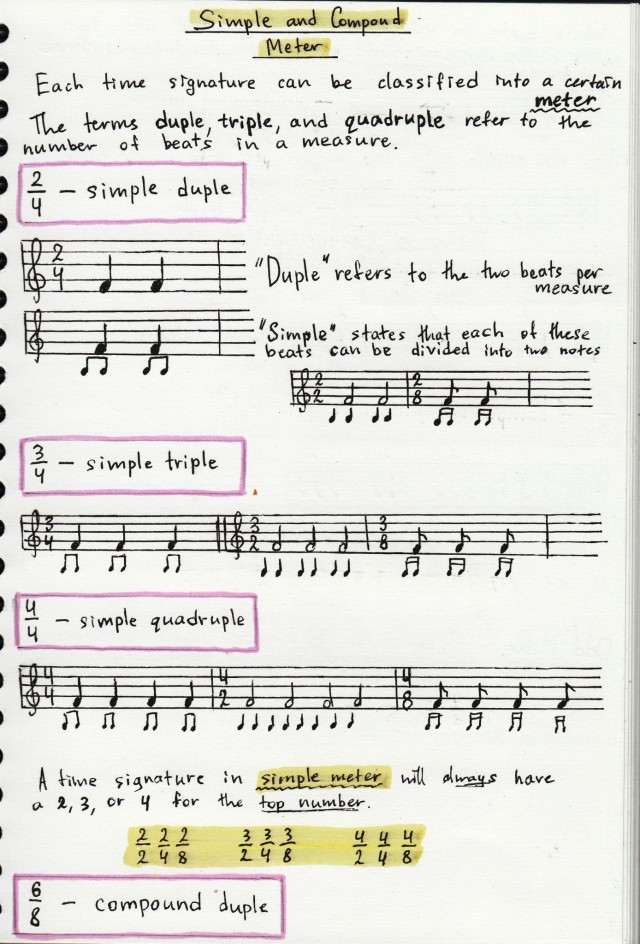 Simple and Compound
Meter
Each time signature can be classified into a certain
meter
The terms duple, triple, and quadruple refer to the
number of beats in a measure.
2/4 – simple duple
2/4
"Duple" refers to the two beats per
measure
"Simple" states that each of these
beats can be divided into two notes
2/2 2/8
3/4 – simple triple
3/4 3/2 3/8
4/4 – simple quadruple
4/4 4/2 4/8
A time signature in simple meter will always have
a 2, 3, or 4 for the top number.
2/2 2/4 2/8 3/2 3/4 3/8 4/2 4/4 4/8
6/8 – compound duple